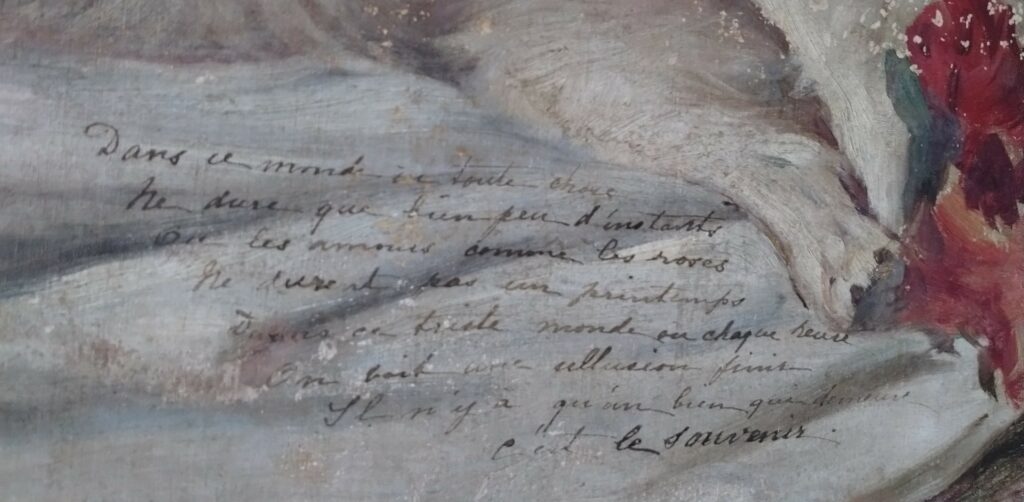 Dans ce monde où toute chose
Ne dure que bien peu d'instants
Ou les amours comme les roses
Ne durent pas un printemps
Dans ce triste monde ou chaque heure
On voit une illusion finir
Il n'y a qu'un bien qui demeure
c'est le souvenir.